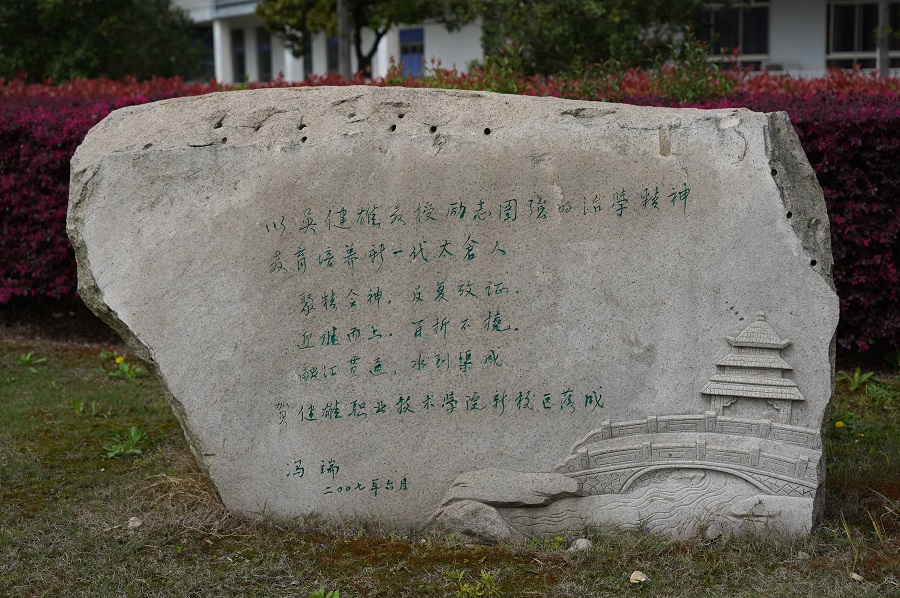 以吴健雄教授励志图强的治学精神
教育培养新一代太仓人
聚精会神，反复考证．
迎难而上，百折不挠．
融汇贯通，水到渠成
贺健雄职业技术学院新校区落成
冯端
二〇〇七年六月